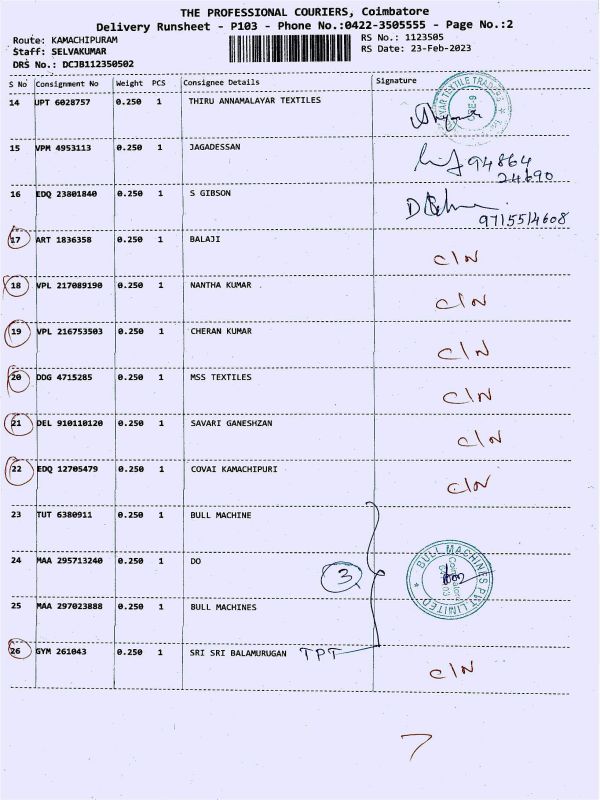 THE PROFESSIONAL COURIERS, Coimbatore
Delivery Runsheet - P103 - Phone No.:0422-3505555 - Page No.:2
Route: KAMACHIPURAM
Staff: SELVAKUMAR
DRS No.: DCJB112350502
RS No.: 1123505
RS Date: 23-Feb-2023
S No Consignment No Weight PCS Consignee Details Signature
14 UPT 6028757 0.250 1 THIRU ANNAMALAYAR TEXTILES
15 VPM 4953113 0.250 1 JAGADESSAN 94864
24690
16 EDQ 23801840 0.250 1 S GIBSON
9715514608
17 ART 1836358 0.250 1 BALAJI C/N
18 VPL 217089190 0.250 1 NANTHA KUMAR C/N
19 VPL 216753503 0.250 1 CHERAN KUMAR C/N
20 DDG 4715285 0.250 1 MSS TEXTILES C/N
21 DEL 910110120 0.250 1 SAVARI GANESHZAN C/N
22 EDQ 12705479 0.250 1 COVAI KAMACHIPURI C/N
23 TUT 6380911 0.250 1 BULL MACHINE
24 MAA 295713240 0.250 1 DO 3 BULL MACHINES PVT LIMITED
25 MAA 297023888 0.250 1 BULL MACHINES
26 GYM 261043 0.250 1 SRI SRI BALAMURUGAN TPT C/N
7